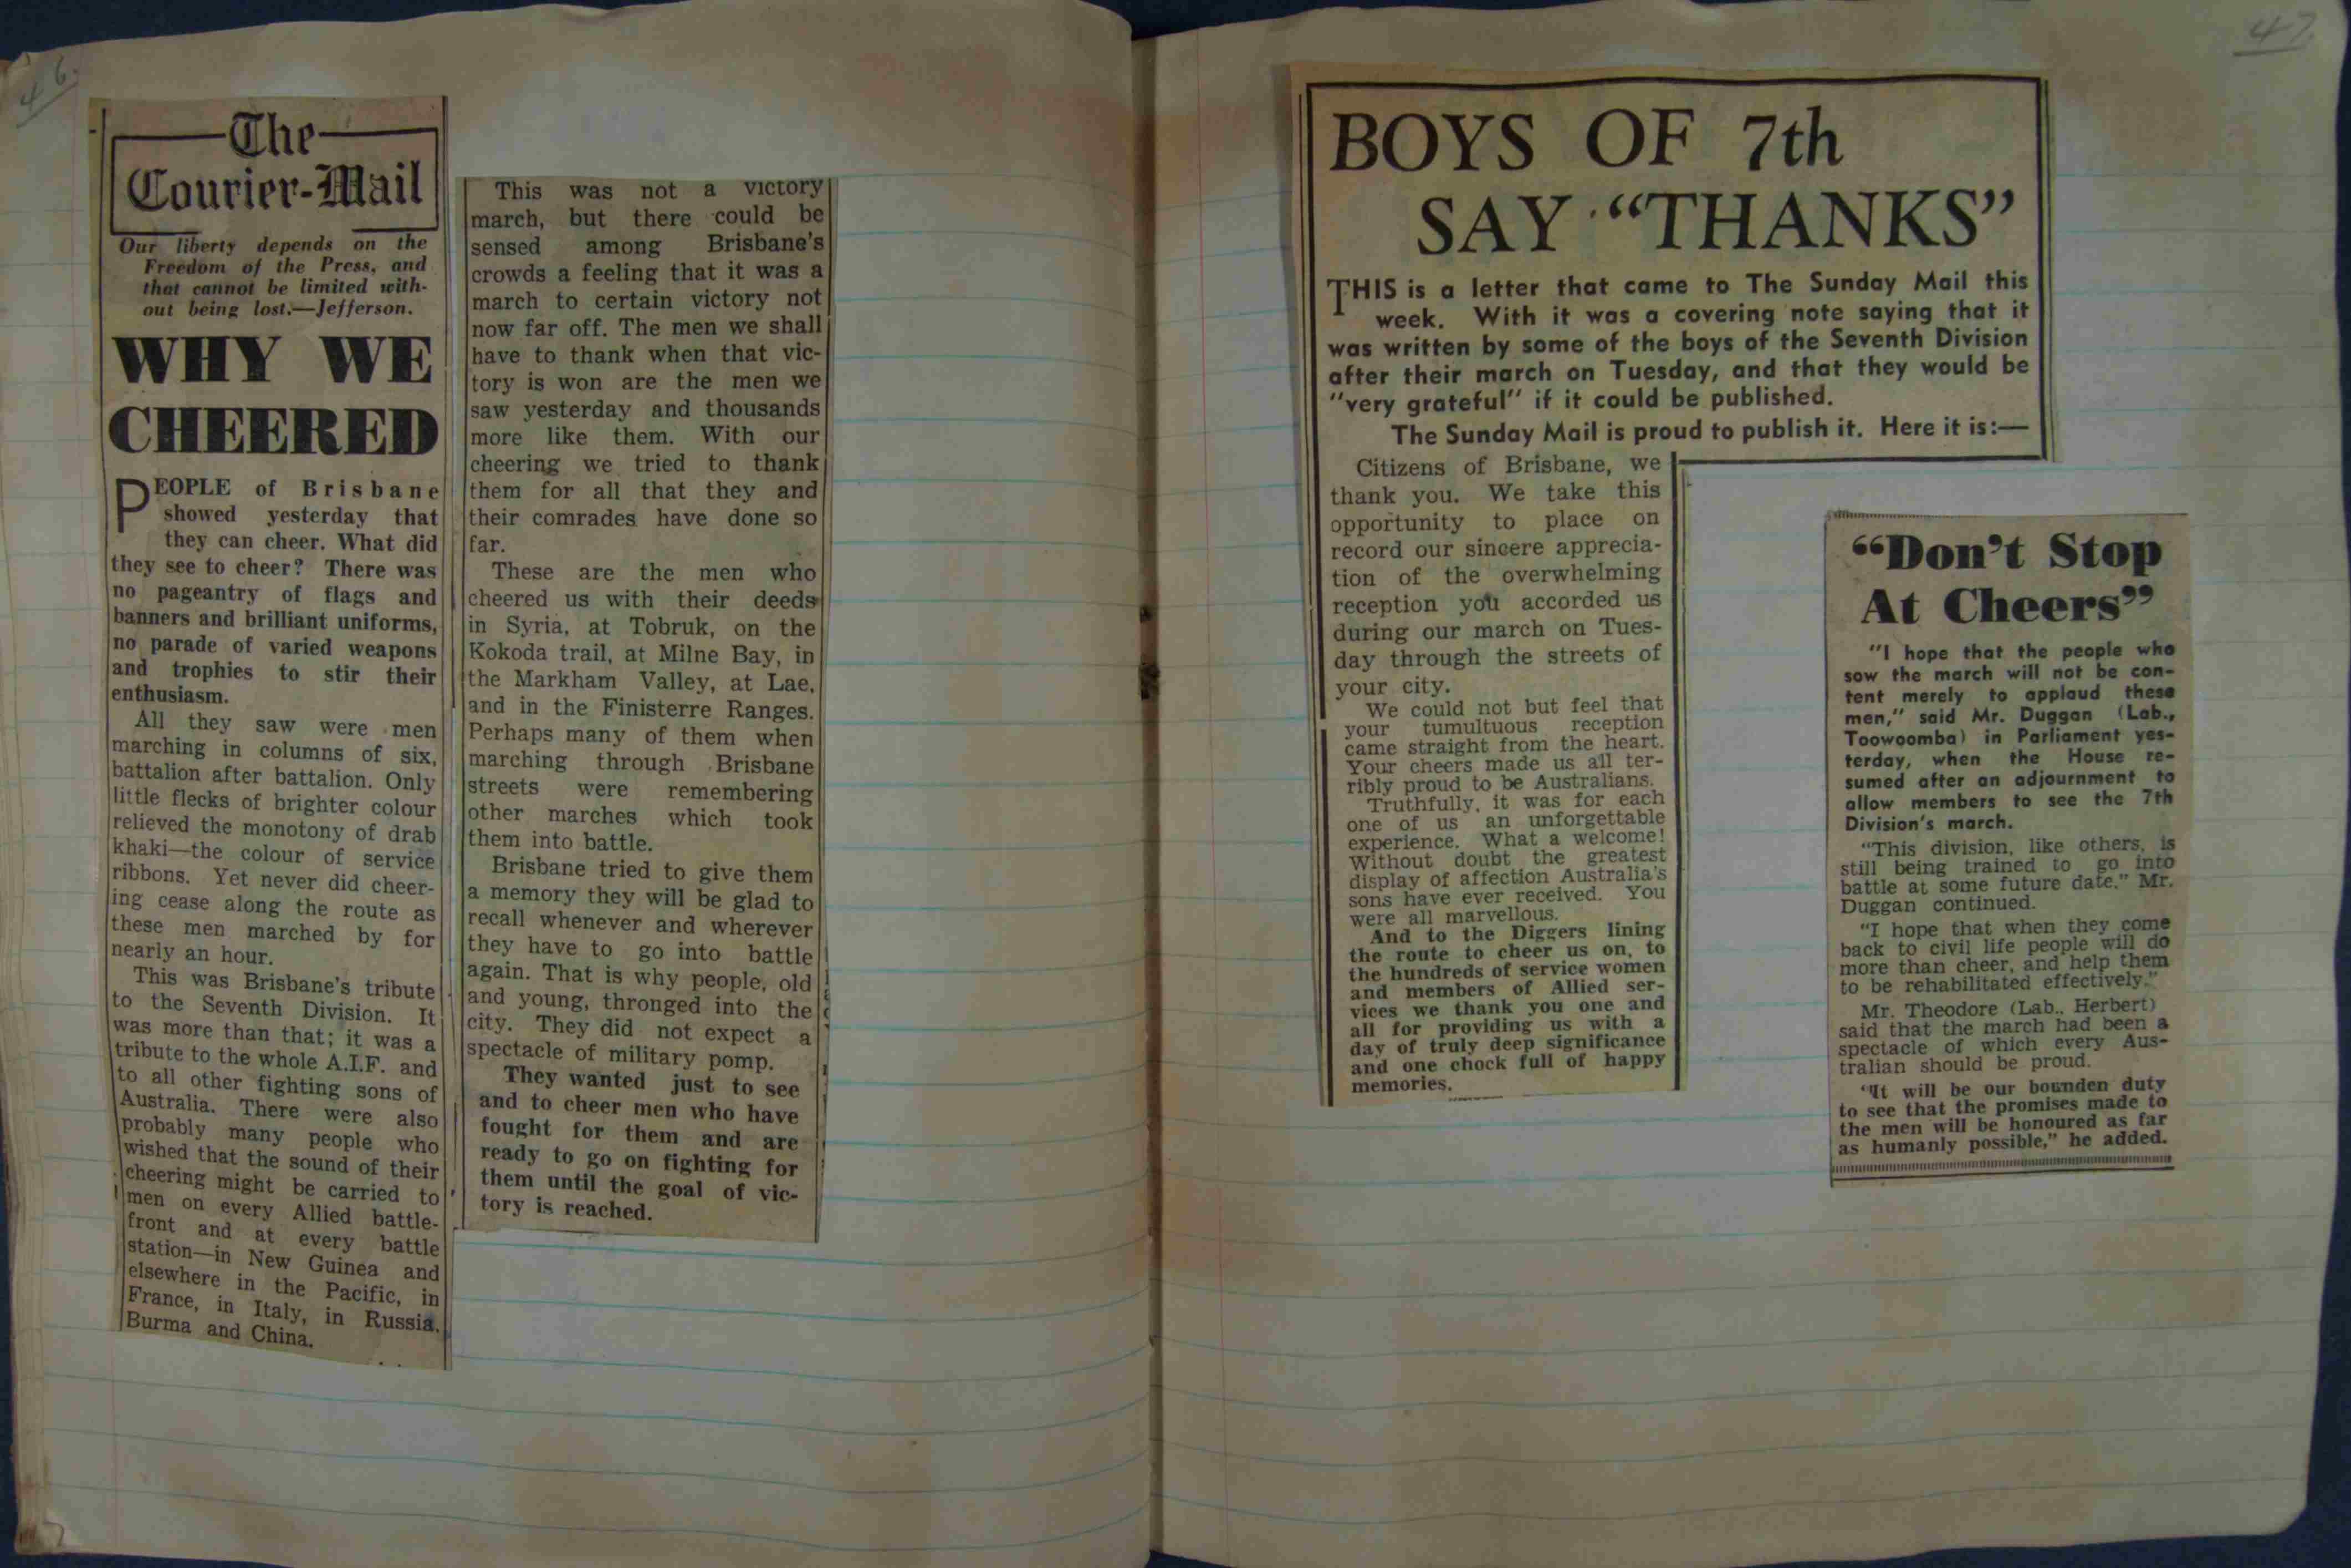 46.
The
Courier-Mail
Our liberty depends on the
Freedom of the Press, and
that cannot be limited with-
out being lost.—Jefferson.
WHY WE
CHEERED
PEOPLE of Brisbane
showed yesterday that
they can cheer. What did
they see to cheer? There was
no pageantry of flags and
banners and brilliant uniforms,
no parade of varied weapons
and trophies to stir their
enthusiasm.
All they saw were men
marching in columns of six,
battalion after battalion. Only
little flecks of brighter colour
relieved the monotony of drab
khaki—the colour of service
ribbons. Yet never did cheer-
ing cease along the route as
these men marched by for
nearly an hour.
This was Brisbane's tribute
to the Seventh Division. It
was more than that; it was a
tribute to the whole A.I.F. and
to all other fighting sons of
Australia. There were also
probably many people who
wished that the sound of their
cheering might be carried to
men on every Allied battle-
front and at every battle
station—in New Guinea and
elsewhere in the Pacific, in
France, in Italy, in Russia,
Burma and China.
This was not a victory
march, but there could be
sensed among Brisbane's
crowds a feeling that it was a
march to certain victory not
now far off. The men we shall
have to thank when that vic-
tory is won are the men we
saw yesterday and thousands
more like them. With our
cheering we tried to thank
them for all that they and
their comrades have done so
far.
These are the men who
cheered us with their deeds
in Syria, at Tobruk, on the
Kokoda trail, at Milne Bay, in
the Markham Valley, at Lae,
and in the Finisterre Ranges.
Perhaps many of them when
marching through Brisbane
streets were remembering
other marches which took
them into battle.
Brisbane tried to give them
a memory they will be glad to
recall whenever and wherever
they have to go into battle
again. That is why people, old
and young, thronged into the
city. They did not expect a
spectacle of military pomp.
They wanted just to see
and to cheer men who have
fought for them and are
ready to go on fighting for
them until the goal of vic-
tory is reached.
47.
BOYS OF 7th
SAY "THANKS"
THIS is a letter that came to The Sunday Mail this
week. With it was a covering note saying that it
was written by some of the boys of the Seventh Division
after their march on Tuesday, and that they would be
"very grateful" if it could be published.
The Sunday Mail is proud to publish it. Here it is:—
Citizens of Brisbane, we
thank you. We take this
opportunity to place on
record our sincere apprecia-
tion of the overwhelming
reception you accorded us
during our march on Tues-
day through the streets of
your city.
We could not but feel that
your tumultuous reception
came straight from the heart.
Your cheers made us all ter-
ribly proud to be Australians.
Truthfully, it was for each
one of us an unforgettable
experience. What a welcome!
Without doubt the greatest
display of affection Australia's
sons have ever received. You
were all marvellous.
And to the Diggers lining
the route to cheer us on, to
the hundreds of service women
and members of Allied ser-
vices we thank you one and
all for providing us with a
day of truly deep significance
and one chock full of happy
memories.
"Don't Stop
At Cheers"
"I hope that the people who
saw the march will not be con-
tent merely to applaud these
men," said Mr. Duggan (Lab.,
Toowoomba) in Parliament yes-
terday, when the House re-
sumed after an adjournment to
allow members to see the 7th
Division's march.
"This division, like others, is
still being trained to go into
battle at some future date." Mr.
Duggan continued.
"I hope that when they come
back to civil life people will do
more than cheer, and help them
to be rehabilitated effectively."
Mr. Theodore (Lab., Herbert)
said that the march had been a
spectacle of which every Aus-
tralian should be proud.
"It will be our bounden duty
to see that the promises made to
the men will be honoured as far
as humanly possible," he added.